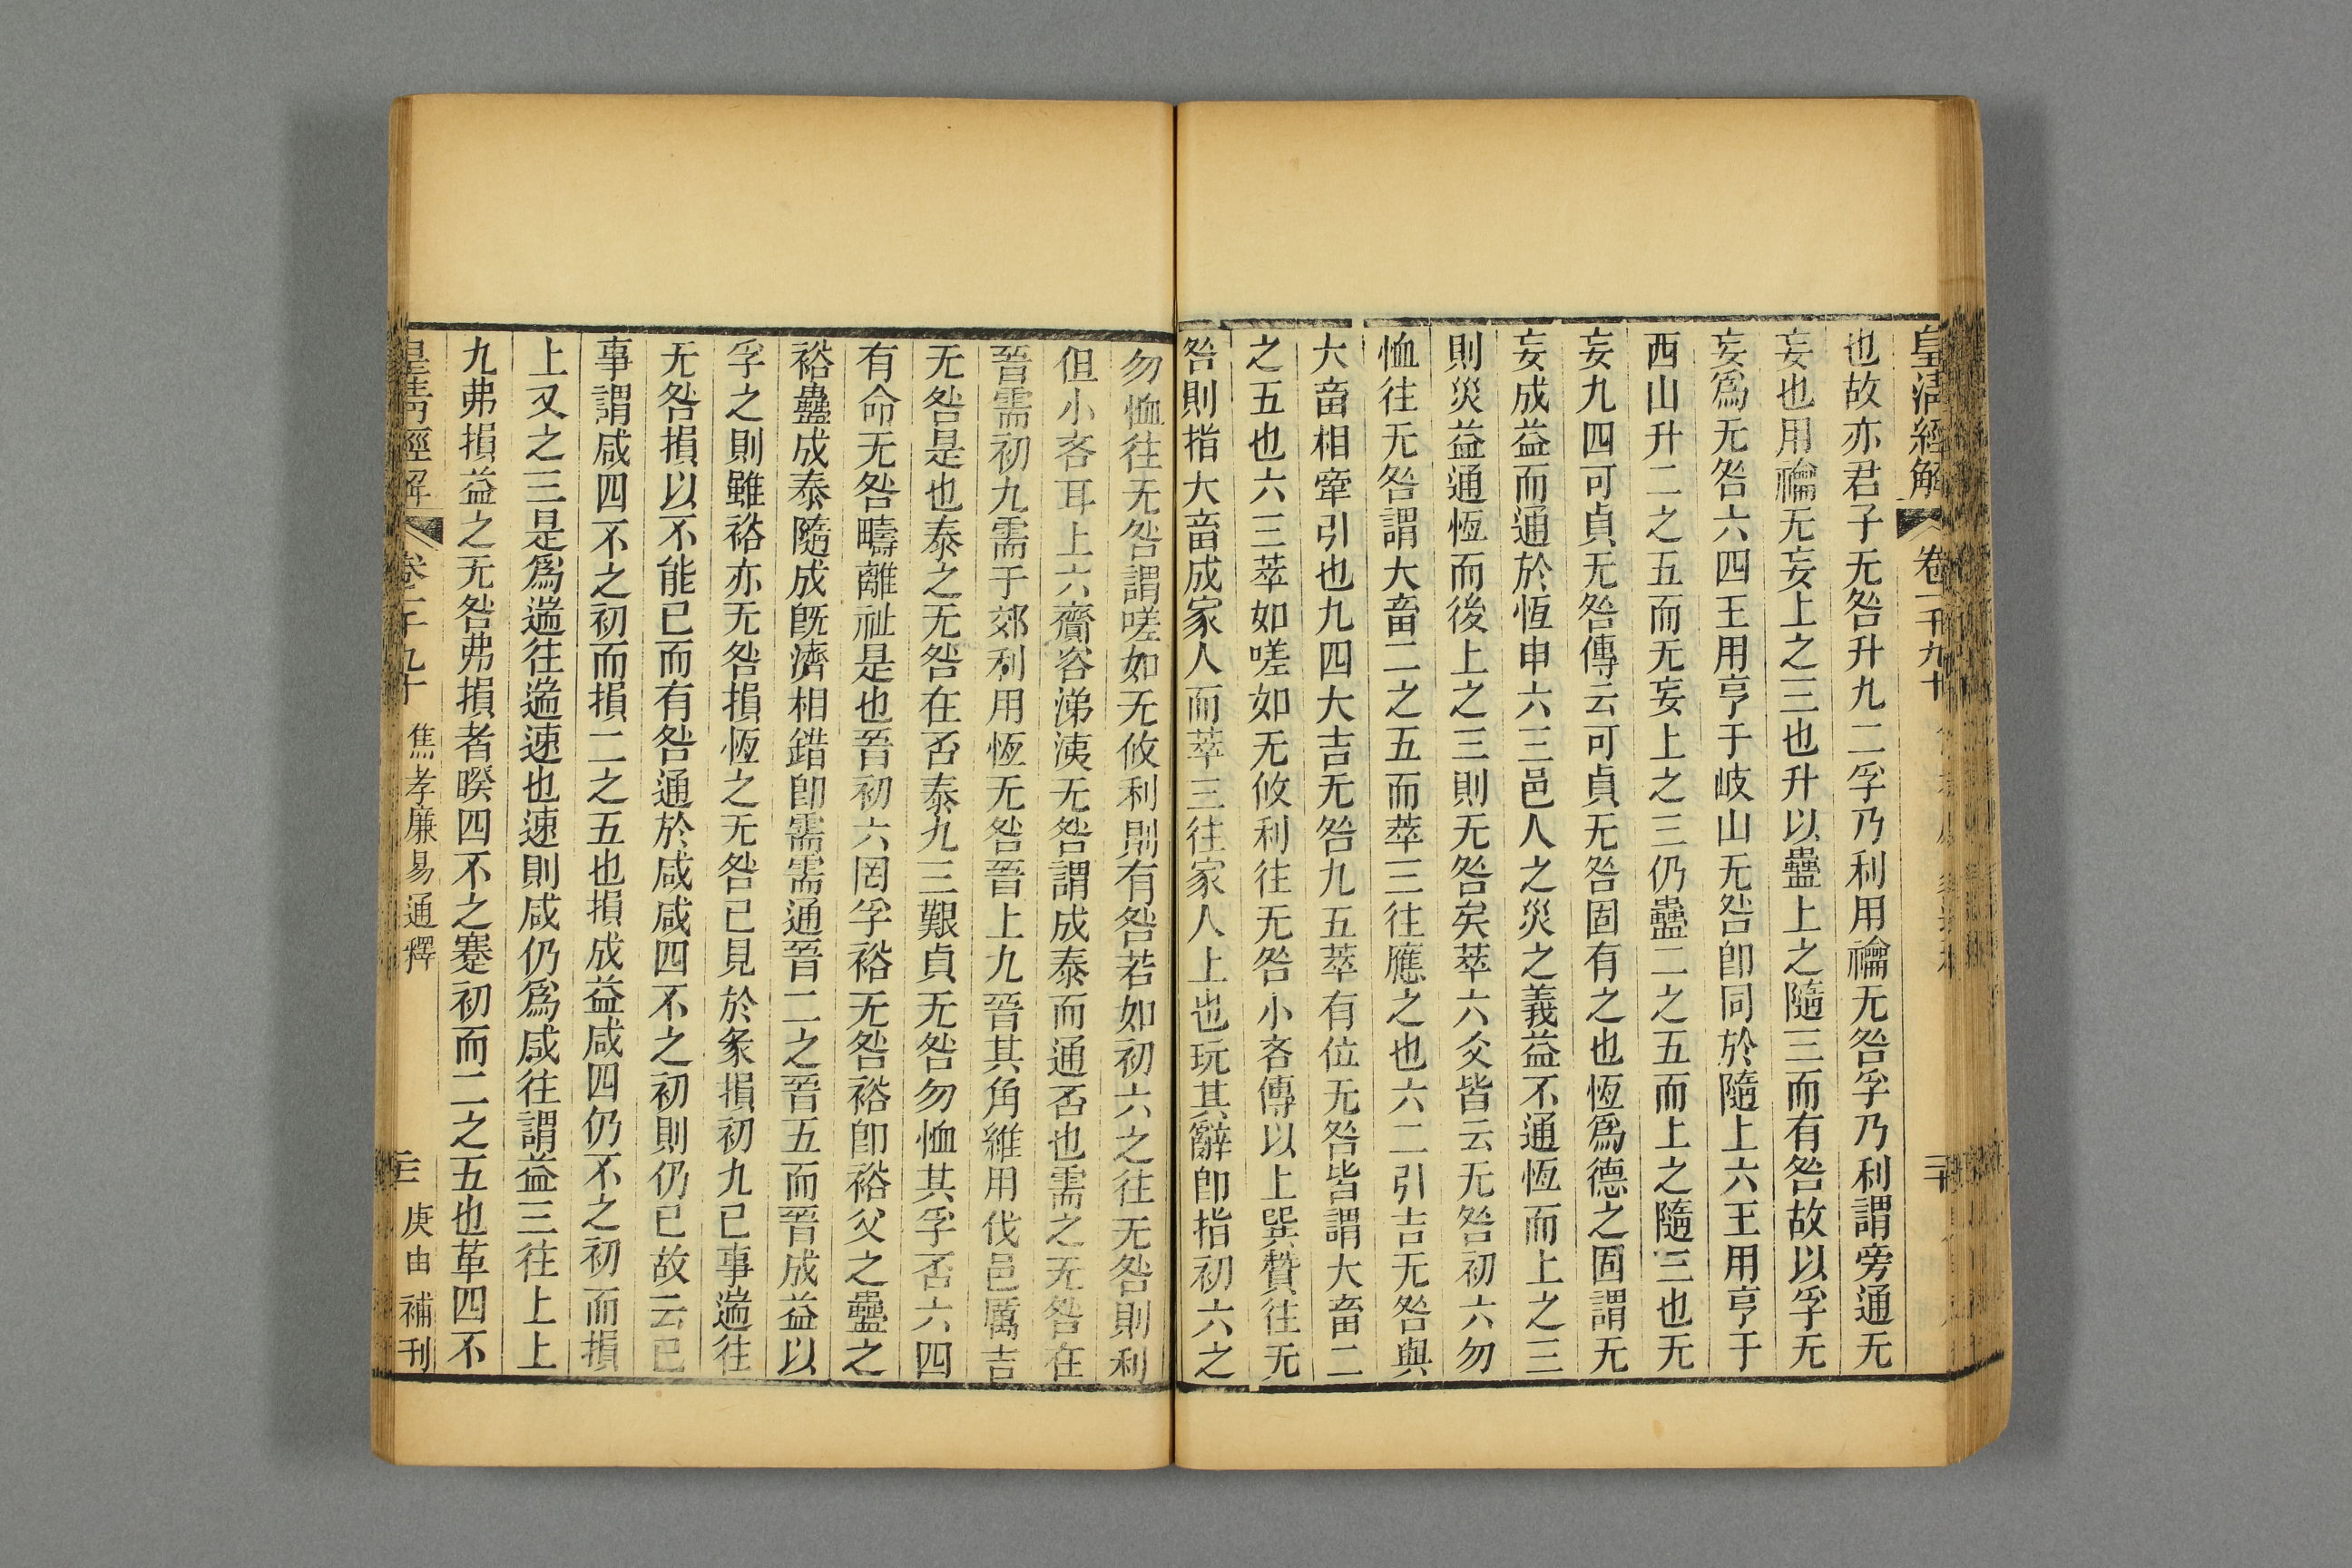 皇清經解 卷一千九十
也故亦君子无咎升九二孚乃利用禴无咎孚乃利謂旁通无
妄也用禴无妄上之三也升以蠱上之隨三而有咎故以孚无
妄爲无咎六四王用亨于岐山无咎卽同於隨上六王用亨于
西山升二之五而无妄上之三仍蠱二之五而上之隨三也无
妄九四可貞无咎傳云可貞无咎固有之也恆爲德之固謂无
妄成益而通於恆申六三邑人之災之義益不通恆而上之三
則災益通恆而後上之三則无咎矣萃六爻皆云无咎初六勿
恤往无咎謂大畜二之五而萃三往應之也六二引吉无咎與
大畜相牽引也九四大吉无咎九五萃有位无咎皆謂大畜二
之五也六三萃如嗟如无攸利往无咎小吝傳以上巽贊往无
咎則指大畜成家人而萃三往家人上也玩其辭卽指初六之
勿恤往无咎謂嗟如无攸利則有咎若如初六之往无咎則利
但小吝耳上六齎咨涕洟无咎謂成泰而通否也需之无咎在
晉需初九需于郊利用恆无咎晉上九晉其角維用伐邑厲吉
无咎是也泰之无咎在否泰九三艱貞无咎勿恤其孚否六四
有命无咎疇離祉是也晉初六罔孚裕无咎裕卽裕父之蠱之
裕蠱成泰隨成旣濟相錯卽需需通晉二之晉五而晉成益以
孚之則雖裕亦无咎損恆之无咎已見於彖損初九已事遄往
无咎損以不能已而有咎通於咸咸四不之初則仍已故云已
事謂咸四不之初而損二之五也損成益咸四仍不之初而損
上又之三是爲遄往遄速也速則咸仍爲咸往謂益三往上上
九弗損益之无咎弗損者睽四不之蹇初而二之五也革四不
皇清經解 卷一千九十 焦孝廉易通釋 三 庚申補刊